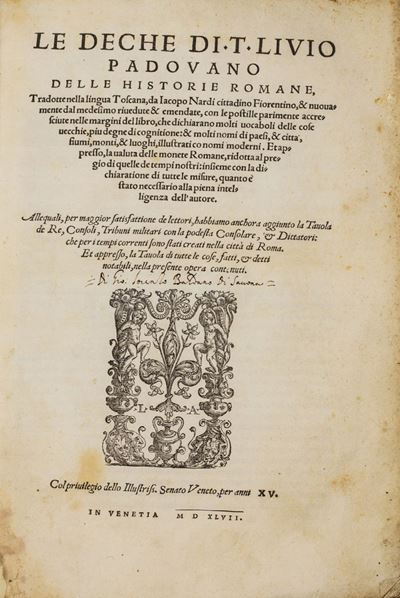 LE DECHE DI·T·LIVIO
PADOVANO
DELLE HISTORIE ROMANE,
Tradotte nella lingua Toscana, da Iacopo Nardi cittadino Fiorentino, & nuoua-
mente dal medesimo riuedute & emendate, con le postille parimente accre-
sciute nelle margini del libro, che dichiarano molti uocaboli delle cose
uecchie, piu degne di cognitione: & molti nomi di paesi, & città,
fiumi, monti, & luoghi, illustrati co nomi moderni. Et ap-
presso, la ualuta delle monete Romane, ridotta al pre-
gio di quelle de tempi nostri: insieme con la di-
chiaratione di tutte le misure, quanto è
stato necessario alla piena intel-
ligenza dell'autore.
Alle quali, per maggior satisfattione de lettori, habbiamo anchora aggiunto la Tauola
de Re, Consoli, Tribuni militari con la podesta Consolare, & Dittatori:
che per i tempi correnti sono stati creati nella città di Roma.
Et appresso, la Tauola di tutte le cose, fatti, & detti
notabili, nella presente opera contenuti.
Di Gio. Baldano di Sauona
L A
Col priuilegio dello Illustriss. Senato Veneto, per anni XV.
IN VENETIA M D XLVII.